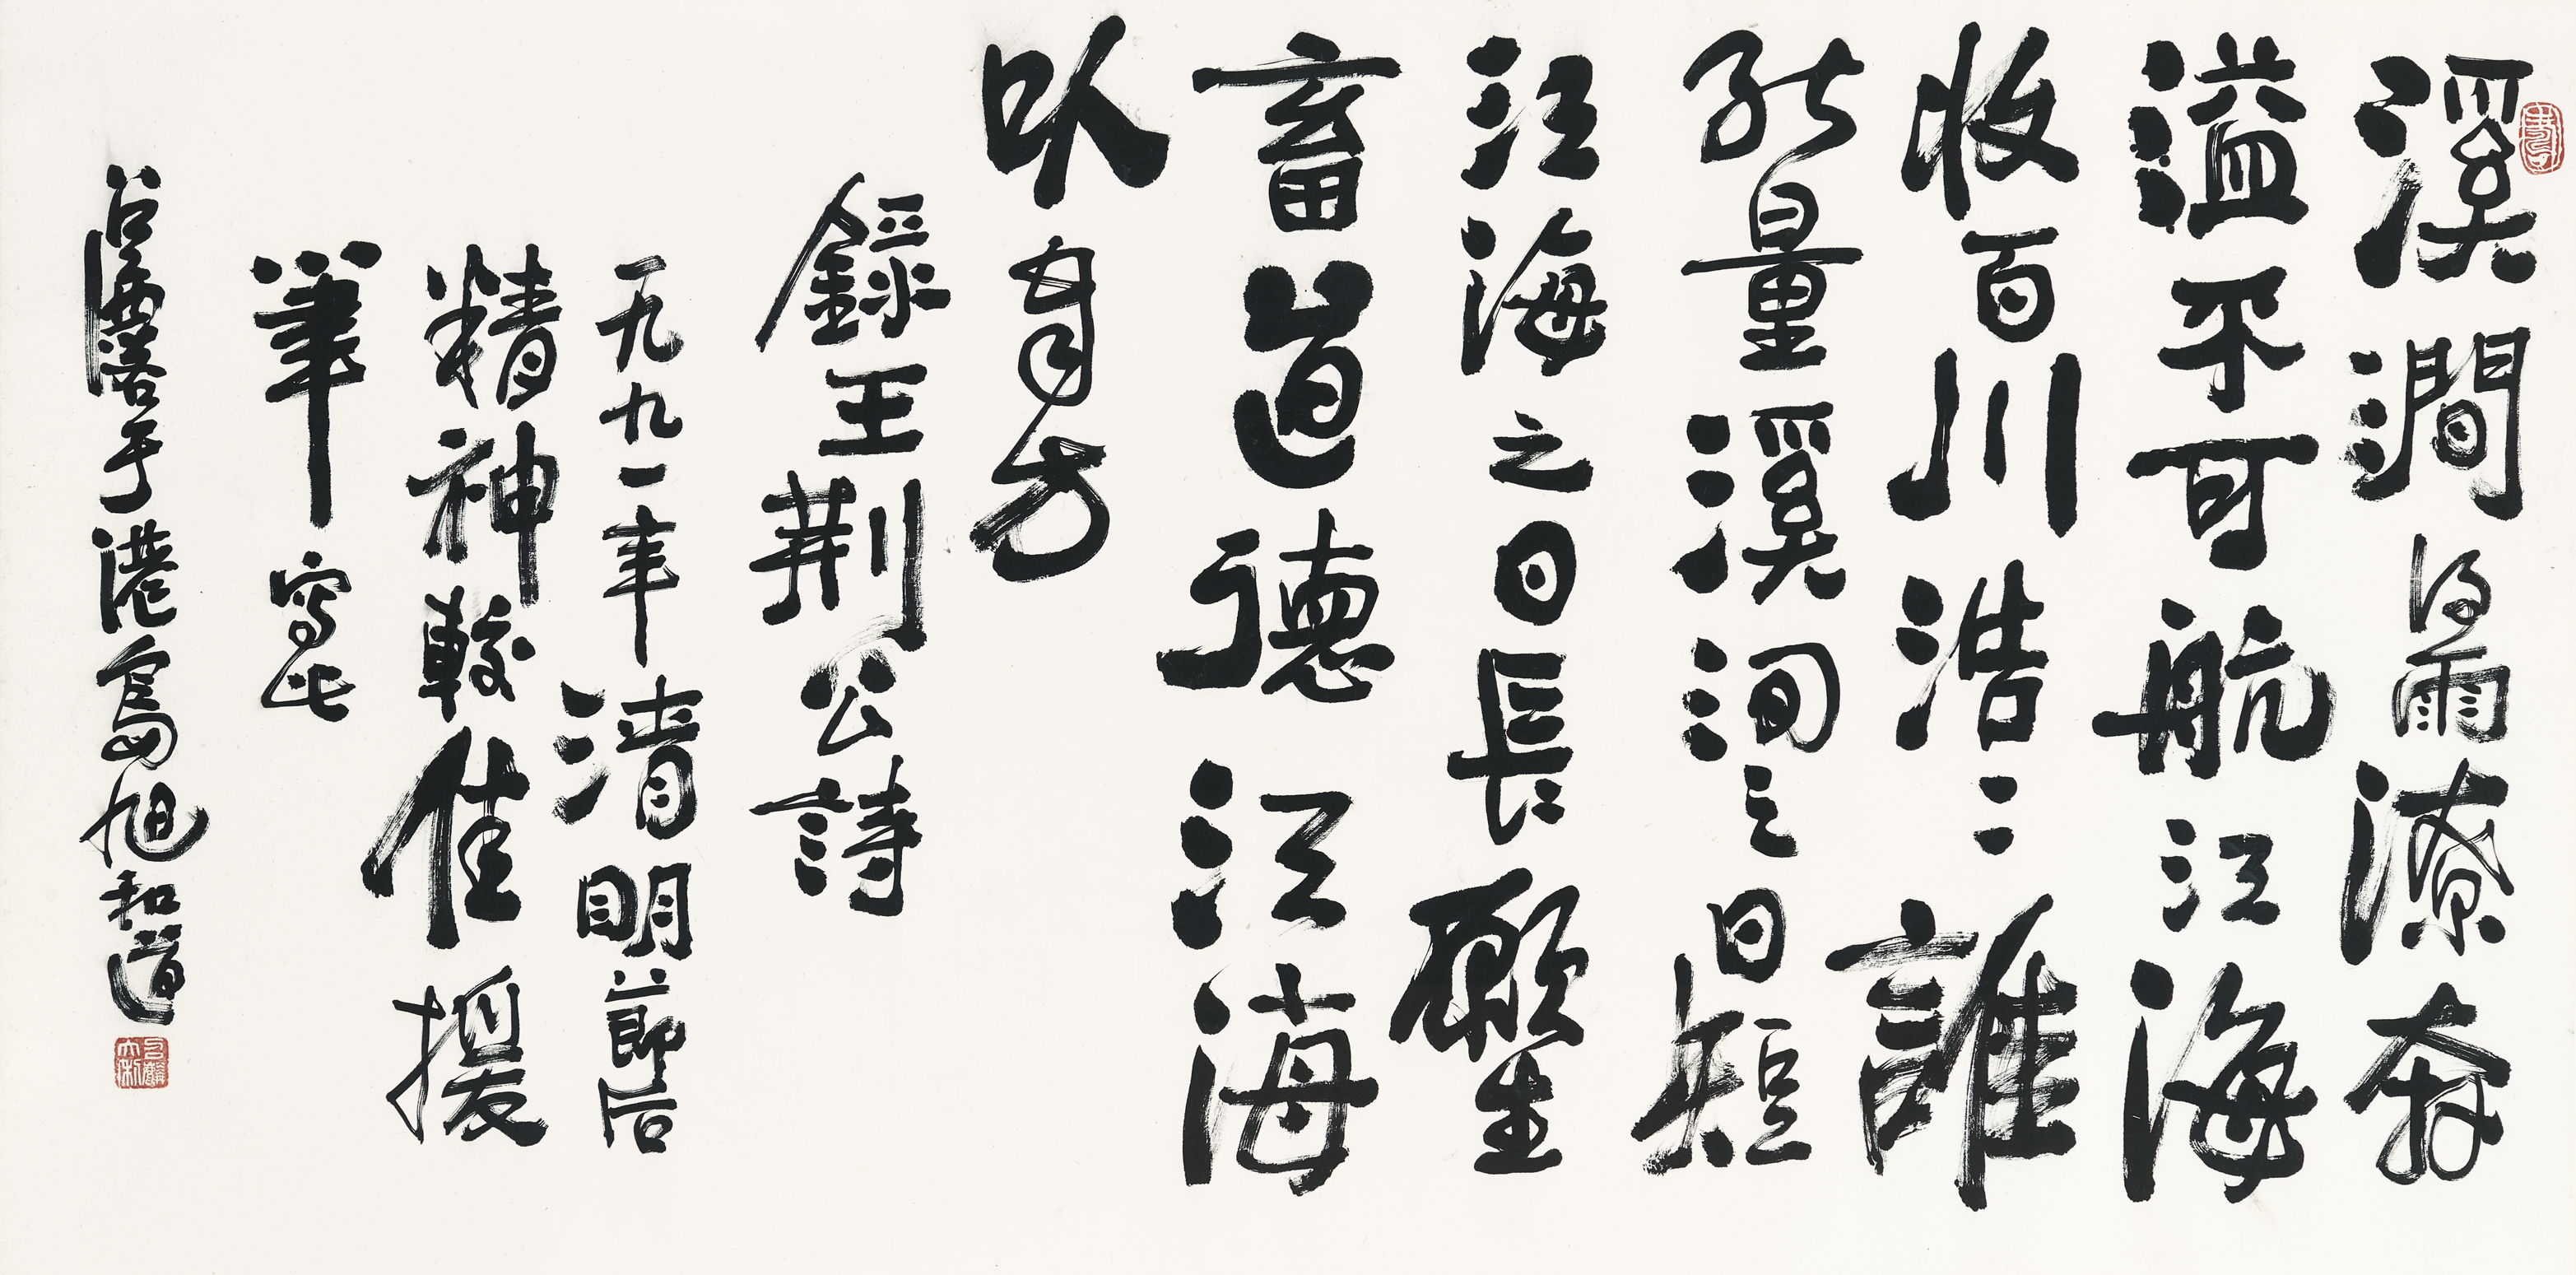 溪澗得雨潦奔
溢不可航江海
收百川浩二誰
能量溪澗之日短
江海之日長願生
畜道德江海
以方
錄王荊公詩
一九九一年清明節后
精神較佳援
筆寫此
于港島旭和道